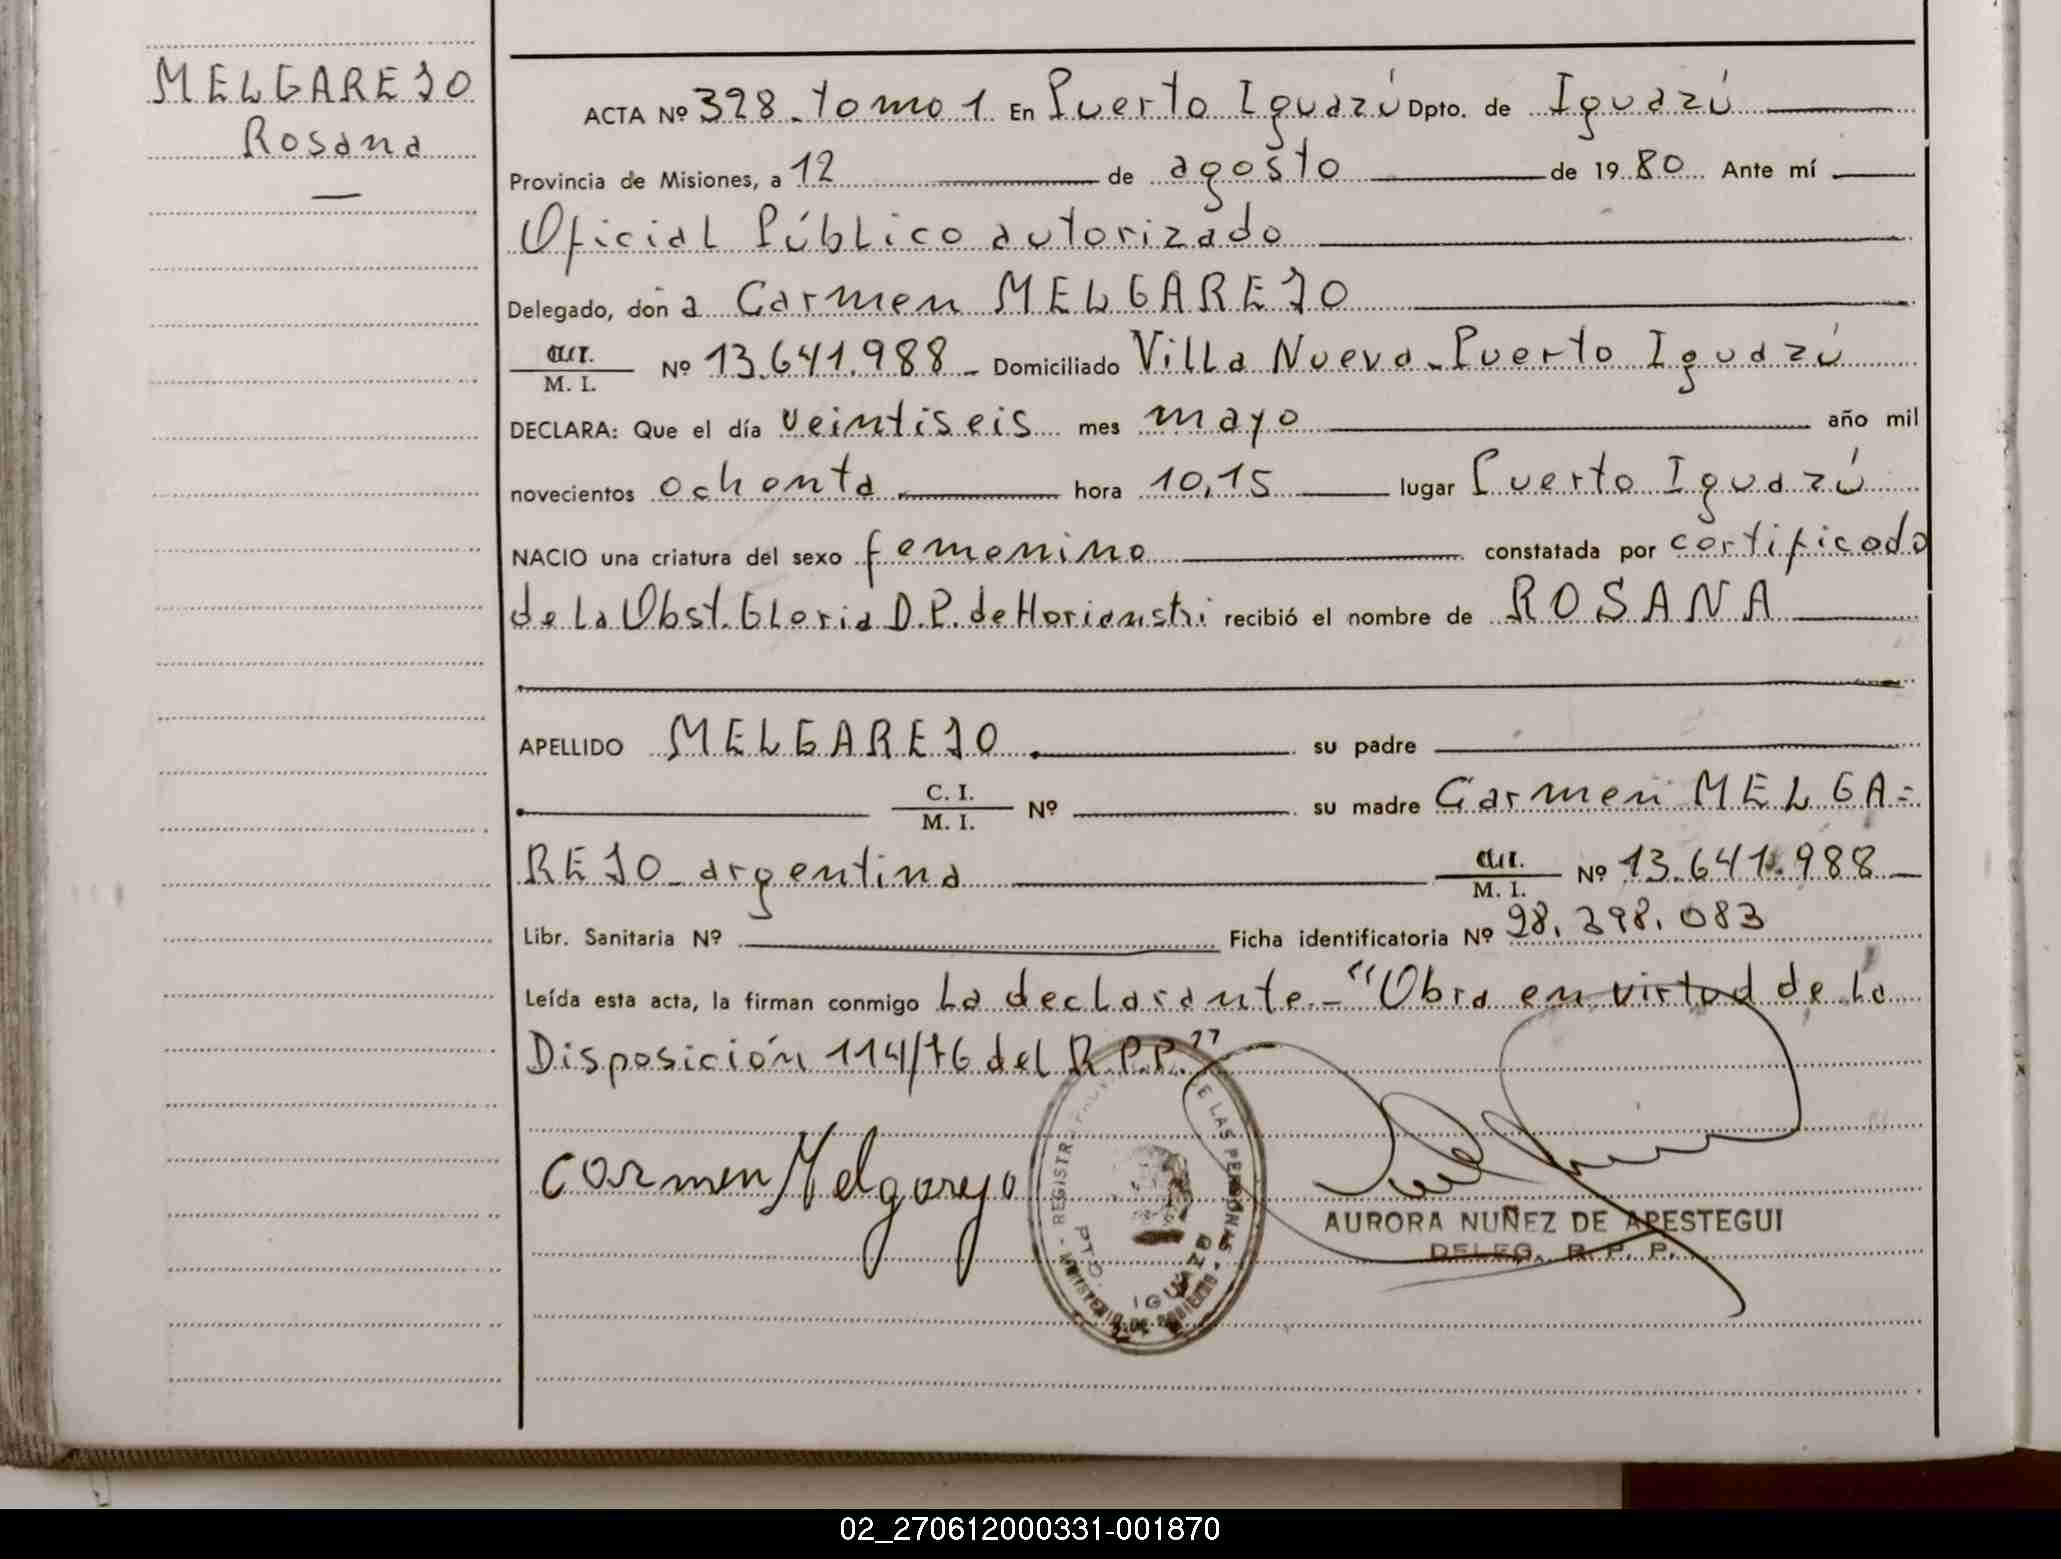 MELGAREJO
Rosana
ACTA Nº 328 - tomo 1 En Puerto Iguazú Dpto. de Iguazú
Provincia de Misiones, a 12 de agosto de 1980 Ante mí
Oficial Público autorizado
Delegado, don a Carmen MELGAREJO
C.I. / M. I. Nº 13.641.988 - Domiciliado Villa Nueva - Puerto Iguazú
DECLARA: Que el día veintiseis mes mayo año mil
novecientos ochenta hora 10,15 lugar Puerto Iguazú
NACIO una criatura del sexo femenino constatada por certificado
de la Obst. Gloria D.P. de recibió el nombre de ROSANA
APELLIDO MELGAREJO su padre
C. I. / M. I. Nº su madre Carmen MELGA=
REJO - argentina C.I. / M. I. Nº 13.641.988
Libr. Sanitaria Nº Ficha identificatoria Nº 28.398.083
Leída esta acta, la firman conmigo la declarante.- "Obra en virtud de la
Disposición 114/76 del R.P.P."
Carmen Melgarejo
REGISTRO DE LAS PERSONAS - MINISTERIO DE GOBIERNO
PTO. IGUAZU
AURORA NUÑEZ DE APESTEGUI
DELEG. R. P. P.
02_270612000331-001870